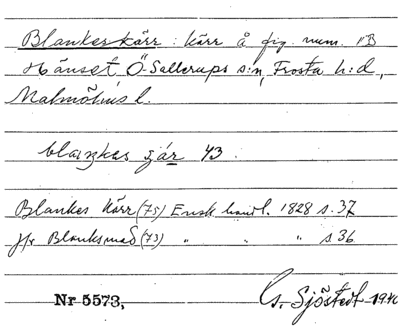 Blankeskärr : Kärr å fig. num. "B
Hänset, Ö-Sallerups s:n, Frosta h:d,
Malmöhus l.
blaŋkas çär 43.
Blankes Kärr (75) Ensk. handl. 1828 s. 37
jfr Blanksmad (73) " " " s 36
Nr 5573, G. Sjöstedt 1940